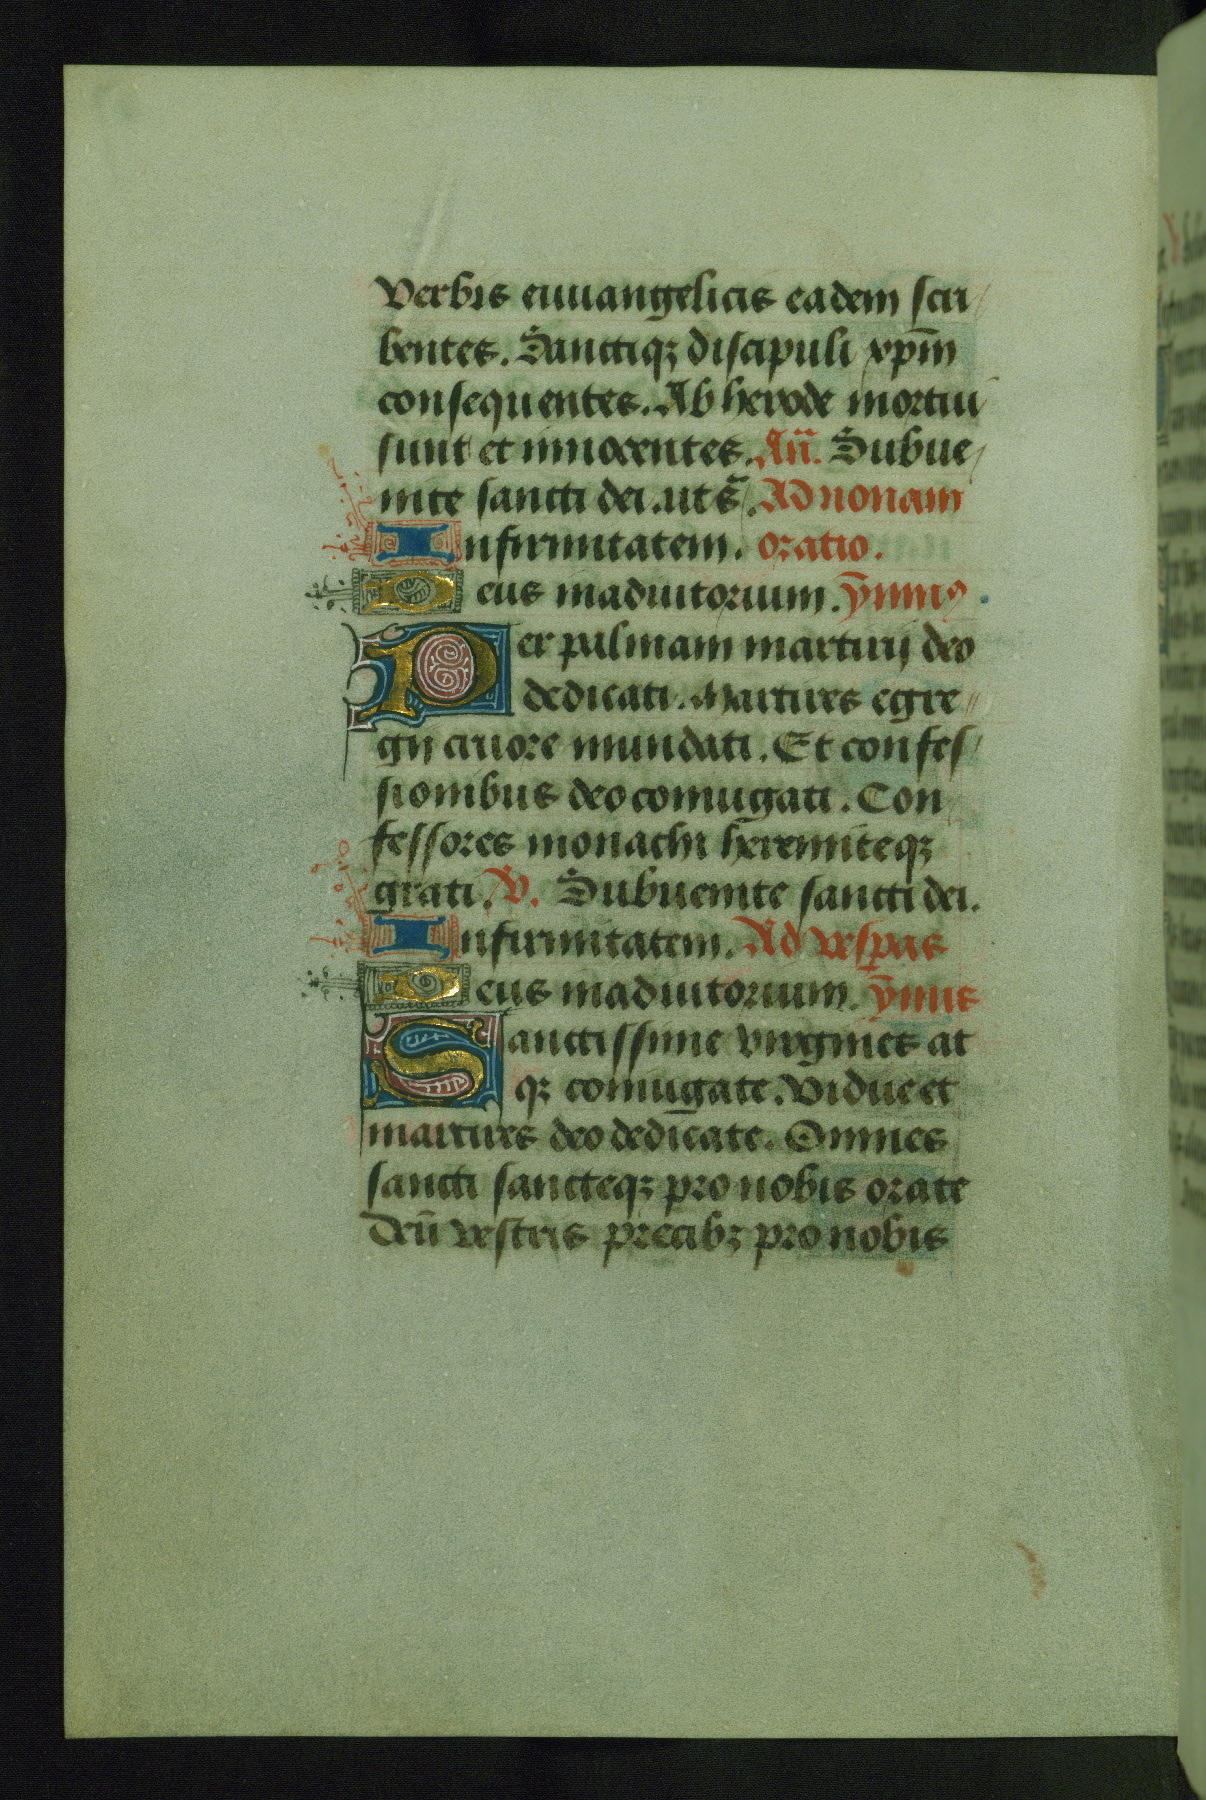 Verbis euuangelicis eadem scri
bentes. Sanctiqȝ discipuli xp̄m
consequentes. Ab herode mortui
sunt et innocentes. An̄. Subue
nite sancti dei. ut sͣ. Ad nonam
Infirmitatem. oratio.
Deus in adiutorium. ȳmnꝰ
Per palmam martirij deo
dedicati. Martires egre
gij cruore mundati. Et confes
sionibus deo coniugati. Con
fessores monachi heremiteqȝ
grati. V. Subuenite sancti dei.
Infirmitatem. Ad vesꝑas
Deus in adiutorium. ȳmnus
Sanctissime virgines at
qȝ coniugate. Vidue et
martires deo dedicate. Omnes
sancti sancteqȝ pro nobis orate
Deū vestris precibȝ pro nobis